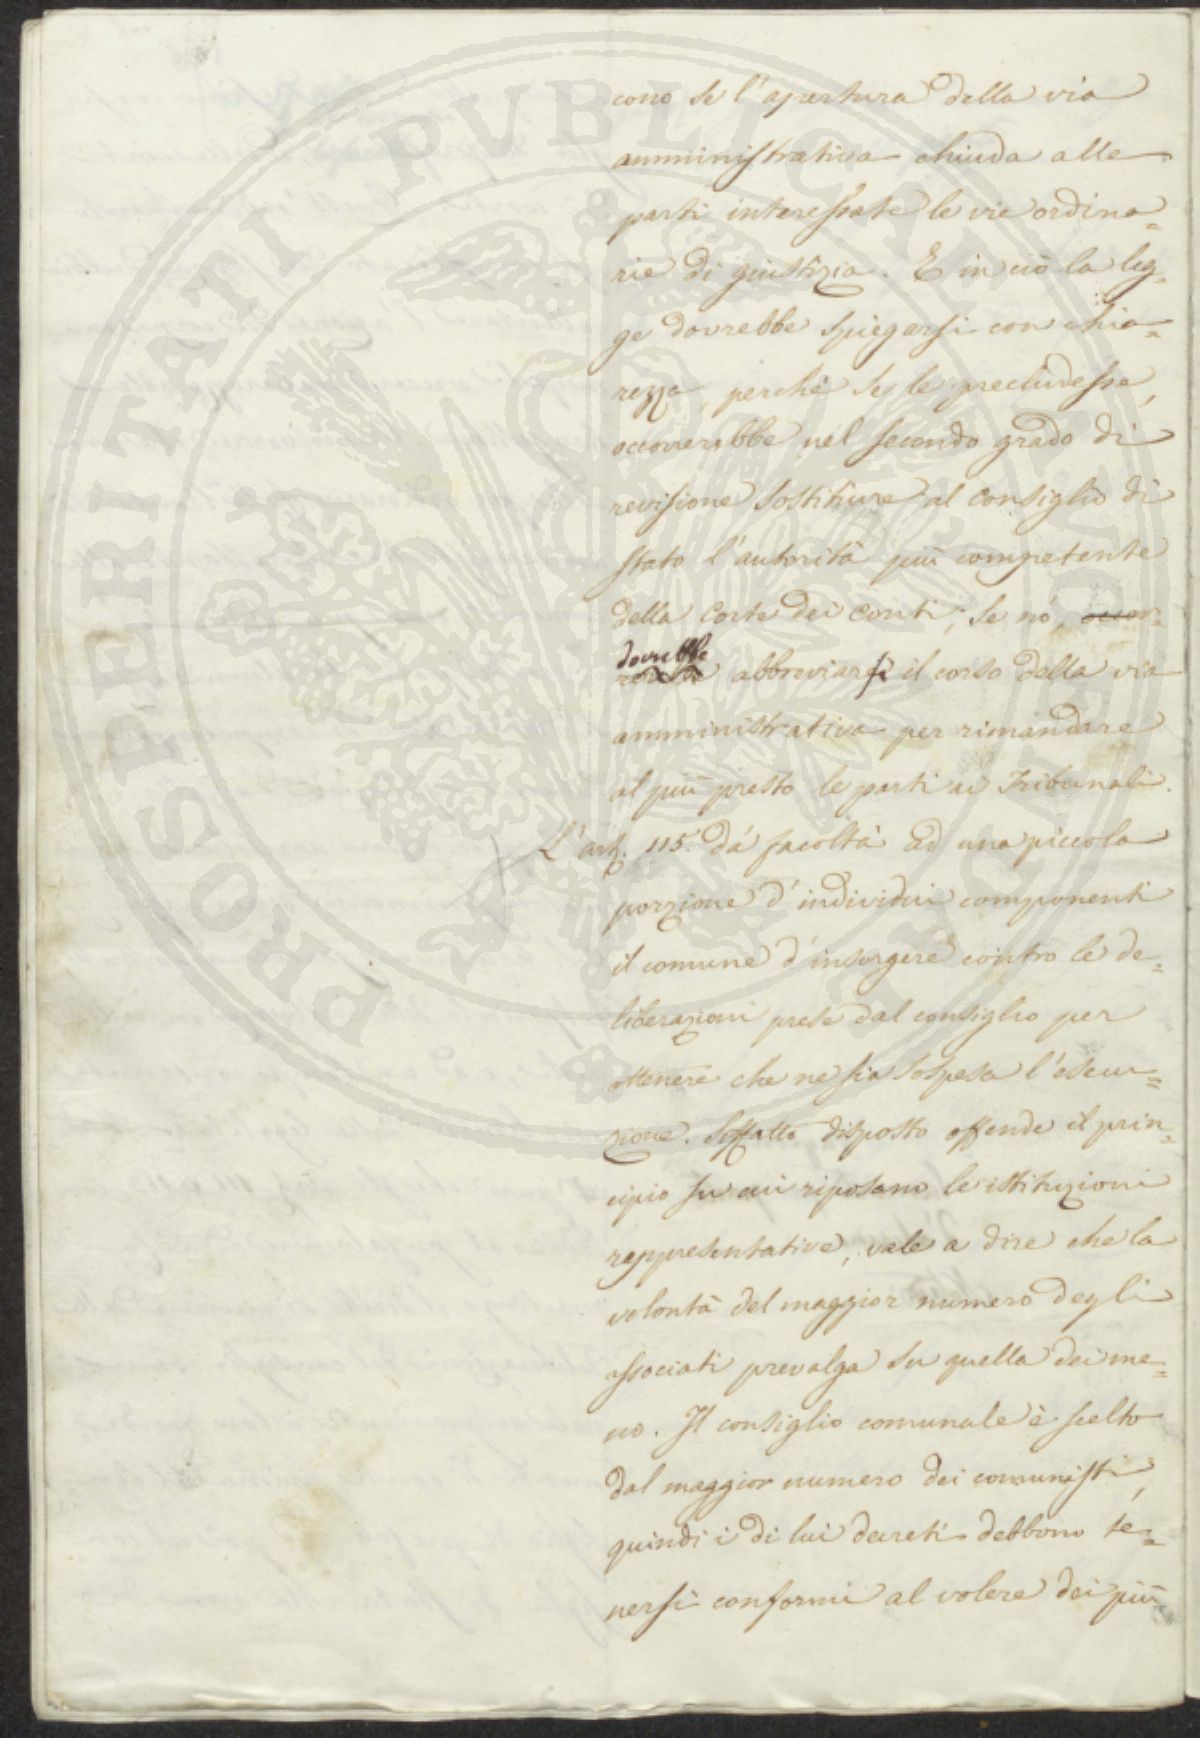 cono se l'apertura della via
amministrativa chiuda alle
parti interessate le vie ordina=
rie di giustizia. E in ciò la leg=
ge dovrebbe spiegarsi con chia=
rezza, perchè se le precludesse,
occorrerebbe nel secondo grado di
revisione sostituire al Consiglio di
stato l'autorità più competente
della Corte dei Conti; se nò, occor=
dovrebbe
rerebbe abbreviarsi il corso della via
amministrativa per rimandare
al più presto le parti ai Tribunali.
L'art. 115. dà facoltà ad una piccola
porzione d'individui componenti
il comune d'insorgere contro le de=
liberazioni prese dal consiglio per
ottenere che ne sia sospesa l'esecu=
zione. Siffatto disposto offende il prin=
cipio su cui riposano le istituzioni
rappresentative, vale a dire che la
volontà del maggior numero degli
associati prevalga su quella dei me=
no. Il consiglio comunale è scelto
dal maggior numero dei comunisti,
quindi i di lui decreti debbono te=
nersi conformi al volere dei più
PROSPERITATI PUBLICAE